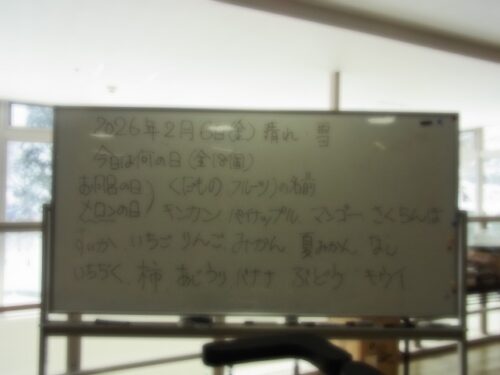 2026年2月6日(金) 晴れ 雪
今日は何の日(全18個)
お風呂の日
メロンの日
くだもの フルーツ)の名前
キンカン パイナップル マンゴー さくらんぼ
すいか いちご りんご みかん 夏みかん なし
いちぢく 柿 あじうり バナナ ぶどう キウイ